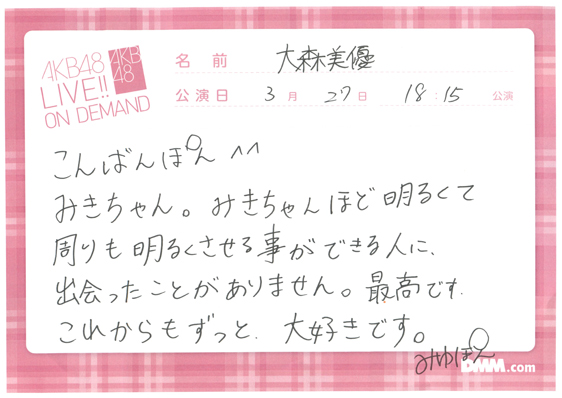 AKB48
LIVE!!
ON DEMAND
AKB
48
名前 大森美優
公演日 3月 27日 18:15 公演
こんばんぽん ^^
みきちゃん。みきちゃんほど明るくて
周りも明るくさせる事ができる人に、
出会ったことがありません。最高です.
これからもずっと、大好きです。
みゆぽん
DMM.com